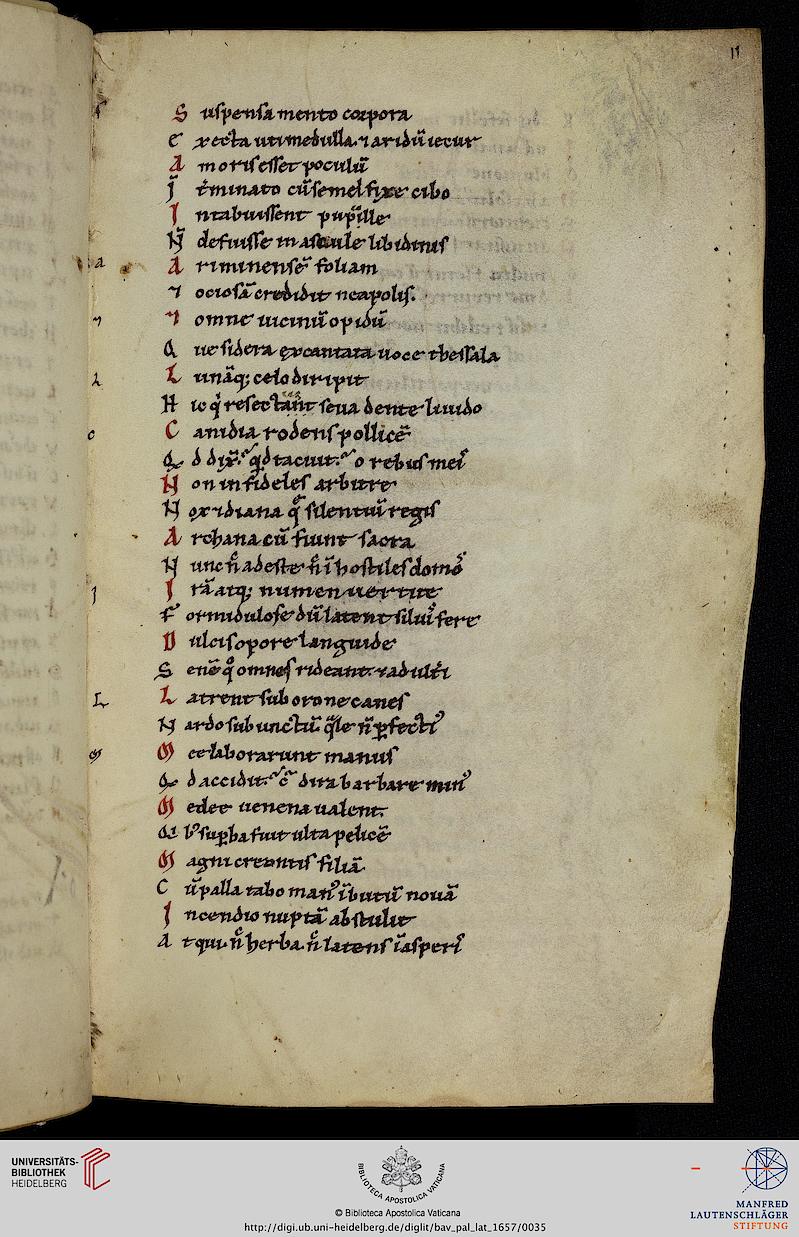 11
S uspensa mento corpora
E xecta uti medulla. ⁊ aridū iecur
A moris esset poculū
I t̄minato cū semel fixe cibo
I ntabuissent pupille
N̄ defuisse mascule libidinis
A riminensē foliam
⁊ ociosā credidit neapolis.
⁊ omne uicinū opidū
Q ue sidera excantata uoce thessala
L unāq; celo diripit
H ic seua dente liuido
C anidia rodens pollicē
Q d dix̄. q̇d tacuit. o rebus meis
N on infideles arbitre
N ox ⁊ diana q̄ silentiū regis
A rchana cū fiunt sacra
N unc n̄c adeste n̄c ī hostiles domos
I rā atq; numen uertite
F ormidulose dū latent siluis fere
D ulci sopore languide
S enē qḋ omnes rideant. adultī
L atrent suburone canes
N ardo sub unctū. q̄le n̄ ꝑfecti᾽
M ee laborarunt manus
Q d accidit. c̄ dira barbare min᾽
M edee uenena ualent.
Q i b᾽ suꝑba fuit ulta pelicē
M agni creontis filiā
C ū palla tabo man᾽ ībutū nouā
I ncendio nuptā abstulit
A t qui. n̄c herba. n̄c latens ī aspis
UNIVERSITÄTS-
BIBLIOTHEK
HEIDELBERG
BIBLIOTECA APOSTOLICA VATICANA
© Biblioteca Apostolica Vaticana
http://digi.ub.uni-heidelberg.de/diglit/bav_pal_lat_1657/0035
MANFRED
LAUTENSCHLÄGER
STIFTUNG